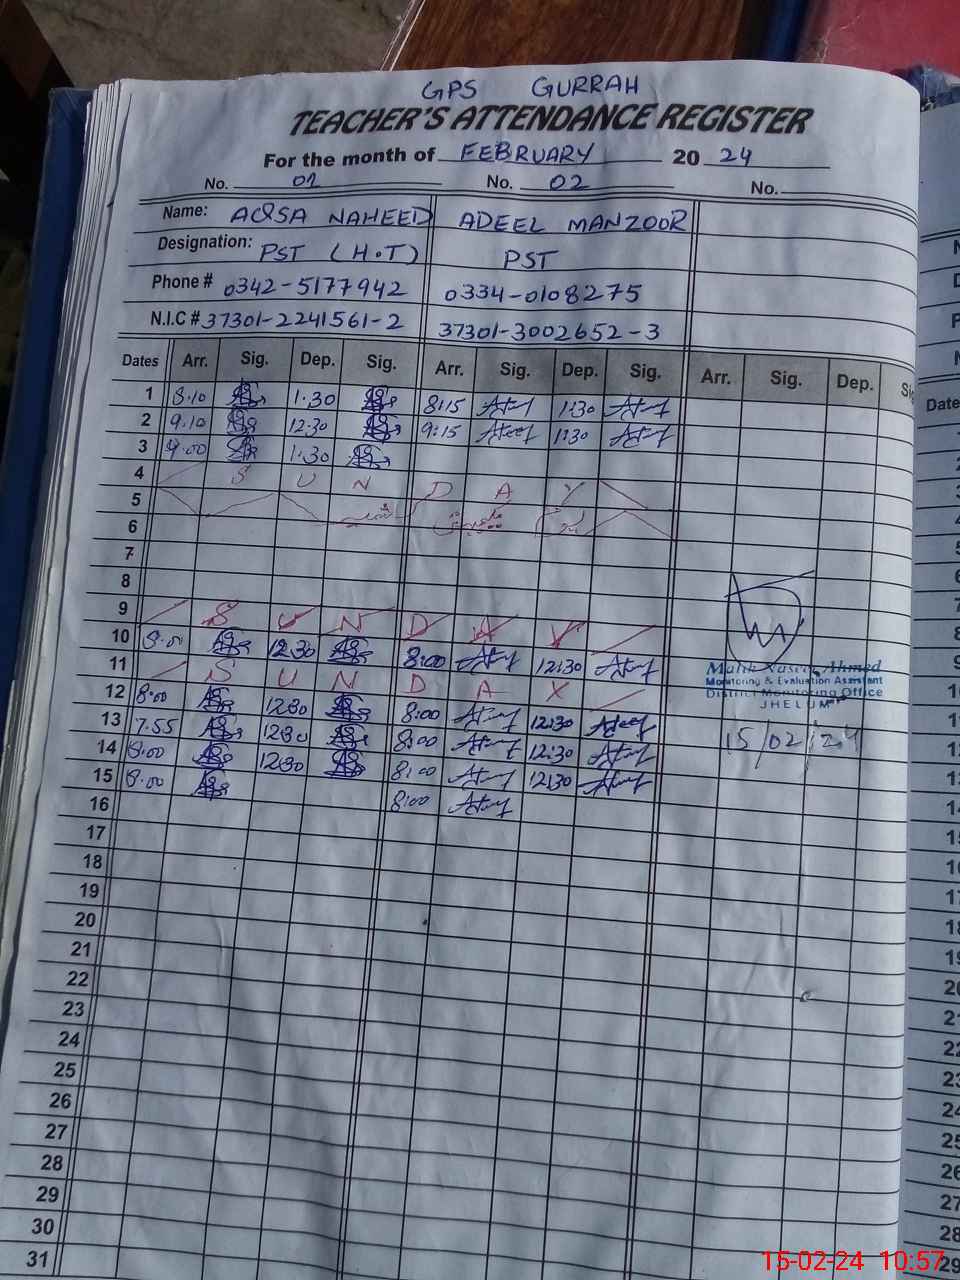 GPS GURRAH
TEACHER'S ATTENDANCE REGISTER
For the month of FEBRUARY 20 24
No. 01 No. 02 No.
Name: AQSA NAHEED ADEEL MANZOOR
Designation: PST (H.T) PST
Phone # 0342-5177942 0334-0108275
N.I.C # 37301-2241561-2 37301-3002652-3
Dates Arr. Sig. Dep. Sig. Arr. Sig. Dep. Sig. Arr. Sig. Dep.
1 8.10 1.30 8:15 1:30
2 9.10 12.30 9:15 1:30
3 9.00 1.30
4 S U N D A Y
5
6
7
8
9 S U N D A Y
10 8.00 12.30 8:00 12:30
11 S U N D A Y
12 8.00 12.30 8:00 12:30
13 7.55 12.30 8:00 12:30
14 8.00 12.30 8:00 12:30
15 8.00 8:00
16
17
18
19
20
21
22
23
24
25
26
27
28
29
30
31
Malik Naseer Ahmed
Monitoring & Evaluation Assistant
District Monitoring Office
JHELUM
15/02/24
15-02-24 10:57